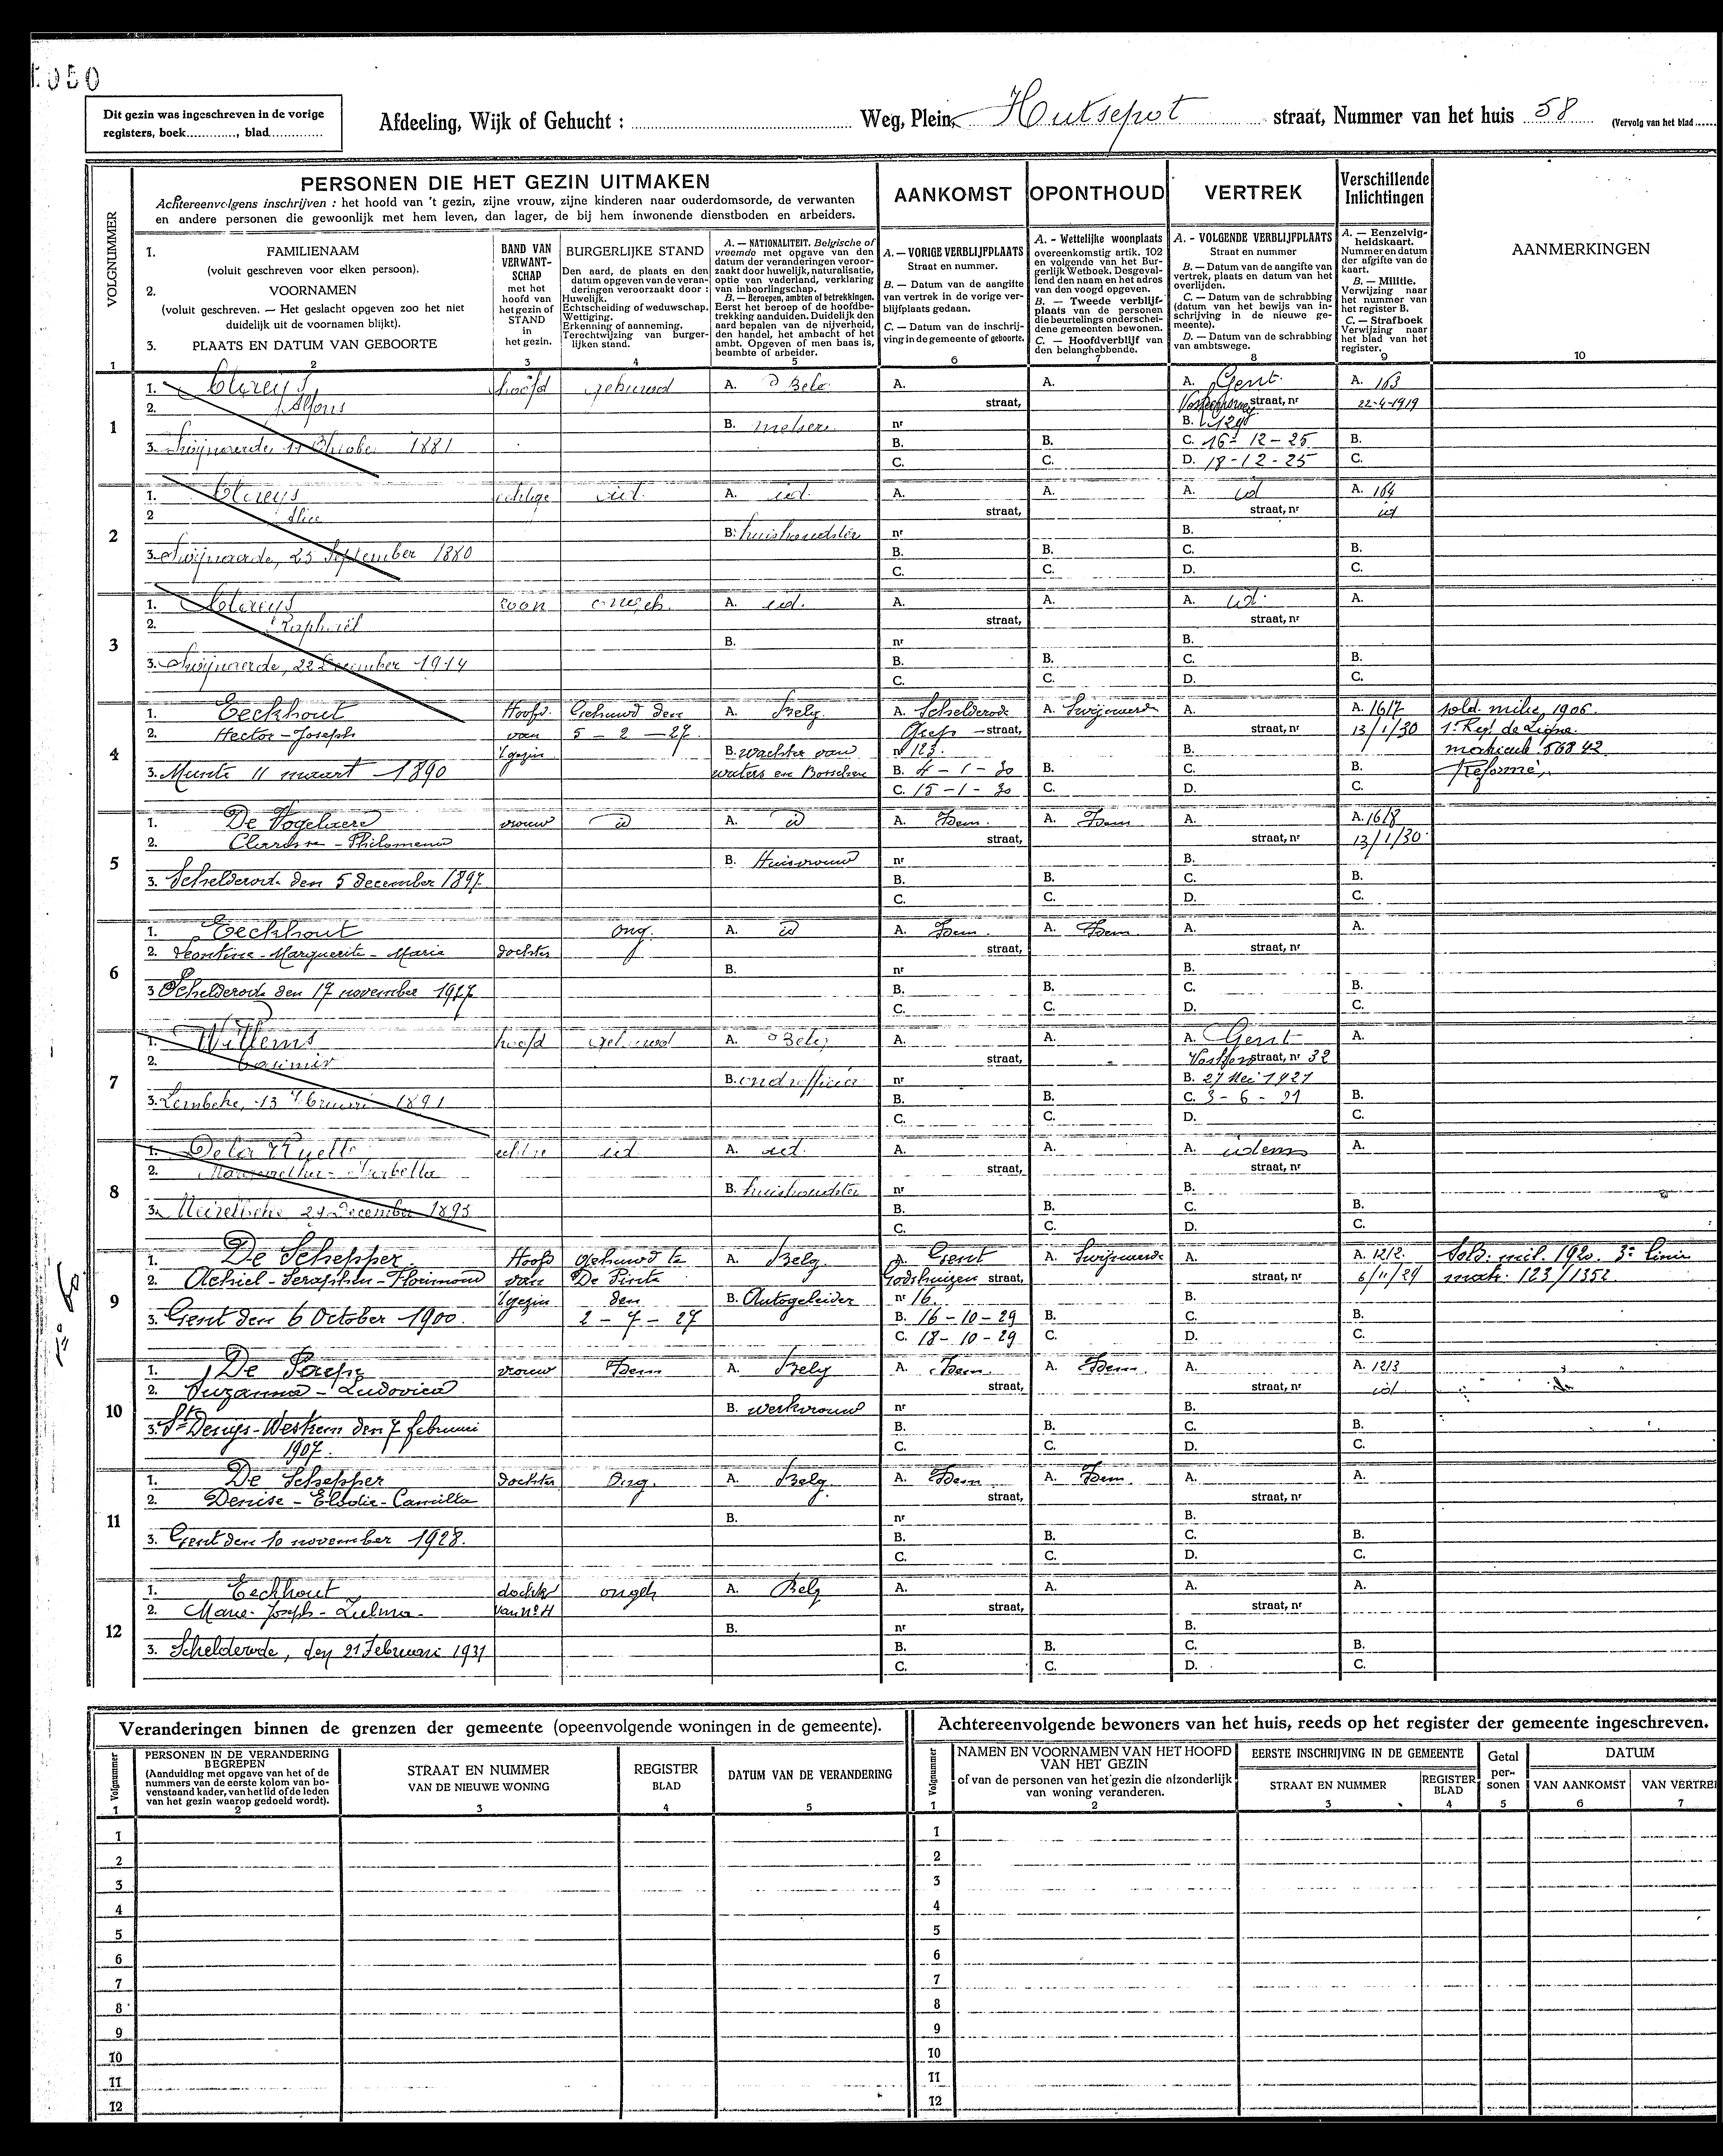 1050
Dit gezin was ingeschreven in de vorige
registers, boek............, blad.............
Afdeeling, Wijk of Gehucht : Weg, Plein, Hutsepot straat, Nummer van het huis 58 (Vervolg van het blad
VOLGNUMMER
PERSONEN DIE HET GEZIN UITMAKEN
Achtereenvolgens inschrijven : het hoofd van 't gezin, zijne vrouw, zijne kinderen naar ouderdomsorde, de verwanten
en andere personen die gewoonlijk met hem leven, dan lager, de bij hem inwonende dienstboden en arbeiders.
AANKOMST
OPONTHOUD
VERTREK
Verschillende
Inlichtingen
1. FAMILIENAAM
(voluit geschreven voor elken persoon).
2. VOORNAMEN
(voluit geschreven. — Het geslacht opgeven zoo het niet
duidelijk uit de voornamen blijkt).
3. PLAATS EN DATUM VAN GEBOORTE
BAND VAN
VERWANT-
SCHAP
met het
hoofd van
het gezin of
STAND
in
het gezin.
BURGERLIJKE STAND
Den aard, de plaats en den
datum opgeven van de veran-
deringen veroorzaakt door :
Huwelijk.
Echtscheiding of weduwschap.
Wettiging.
Erkenning of aanneming.
Terechtwijzing van burger-
lijken stand.
A. — NATIONALITEIT. Belgische of
vreemde met opgave van den
datum der veranderingen veroor-
zaakt door huwelijk, naturalisatie,
optie van vaderland, verklaring
van inboorlingschap.
B. — Beroepen, ambten of betrekkingen.
Eerst het beroep of de hoofdbe-
trekking aanduiden. Duidelijk den
aard bepalen van de nijverheid,
den handel, het ambacht of het
ambt. Opgeven of men baas is,
beambte of arbeider.
A. — VORIGE VERBLIJFPLAATS
Straat en nummer.
B. — Datum van de aangifte
van vertrek in de vorige ver-
blijfplaats gedaan.
C. — Datum van de inschrij-
ving in de gemeente of geboorte.
A. - Wettelijke woonplaats
overeenkomstig artik. 102
en volgende van het Bur-
gerlijk Wetboek. Desgeval-
lend den naam en het adres
van den voogd opgeven.
B. — Tweede verblijf-
plaats van de personen
die beurtelings onderschei-
dene gemeenten bewonen.
C. — Hoofdverblijf van
den belanghebbende.
A. - VOLGENDE VERBLIJFPLAATS
Straat en nummer
B. — Datum van de aangifte van
vertrek, plaats en datum van het
overlijden.
C. — Datum van de schrabbing
(datum van het bewijs van in-
schrijving in de nieuwe ge-
meente).
D. — Datum van de schrabbing
van ambtswege.
A. — Eenzelvig-
heidskaart.
Nummer en datum
der afgifte van de
kaart.
B. — Militie.
Verwijzing naar
het nummer van
het register B.
C. — Strafboek
Verwijzing naar
het blad van het
register.
AANMERKINGEN
1 2 3 4 5 6 7 8 9 10
1 1. Clereys hoofd gehuwd A. Belg A. A. A. Gent. A. 163
2. Alfons straat, straat, nr 22-4-1919
B. metser nr B.
3. Swijnaerde, October 1881 B. B. C. 16-12-25 B.
C. C. D. 18-12-25 C.
2 1. Clereys id. A. id. A. A. A. id A. 164
2 Alice straat, straat, nr id
B. huishoudster nr B.
3. Swijnaerde, 25 September 1880 B. B. C. B.
C. C. D. C.
3 1. Clereys zoon ongeh. A. id. A. A. A. id. A.
2. Raphaël straat, straat, nr
B. nr B.
3. Swijnaerde, 22 December 1914 B. B. C. B.
C. C. D. C.
4 1. Eeckhout Hoofd. Gehuwd den A. Belg A. Schelderode A. Swijnaerde A. A. 1617 sold. milic, 1906.
2. Hector-Joseph van 5-2-27. straat, straat, nr 13/1/30 1e Reg. de Ligne.
't gezin B. wachter van nr 123. B. 56842
3. Munte 11 maart 1890 waters en Bosschen B. 4-1-30 B. C. B. Réformé.
C. 15-1-30 C. D. C.
5 1. De Vogelaere vrouw id A. id A. Idem. A. Idem A. A. 1618
2. Philomena straat, straat, nr 13/1/30
B. Huisvrouw nr B.
3. Schelderode den 5 December 1897 B. B. C. B.
C. C. D. C.
6 1. Eeckhout ong. A. id A. Idem. A. Idem A. A.
2. Leontine-Marguerite-Marie dochter straat, straat, nr
B. nr B.
3 Schelderode den 17 november 1927 B. B. C. B.
C. C. D. C.
7 1. Willems hoofd gehuwd A. Belg A. A. A. Gent A.
2. Casimir straat, straat, nr 32
B. onderofficier nr B. 27 Mei 1921
3. Lembeke, 13 1891 B. B. C. 3-6-21 B.
C. C. D. C.
8 1. Dela Ruelle id A. id. A. A. A. idem A.
2. straat, straat, nr
B. huishoudster nr B.
3. December 1893 B. B. C. B.
C. C. D. C.
9 1. De Schepper Hoofd gehuwd te A. Belg. A. Gent A. Swijnaerde A. A. 1212. Sold. mil. 1920. 3e linie
2. Achiel-Seraphin-Florimond van De Pinte Godshuizen straat, straat, nr 6/11/29 matr. 123/1352.
't gezin den B. Autogeleider nr 16. B.
3. Gent den 6 October 1900. 2-7-27 B. 16-10-29 B. C. B.
C. 18-10-29 C. D. C.
10 1. De Paepe vrouw Idem A. Belg A. Idem. A. Idem. A. A. 1213
2. Suzanna-Ludovica straat, straat, nr id.
B. werkvrouw nr B.
3. St Denijs-Westrem den 7 februari B. B. C. B.
1907. C. C. D. C.
11 1. De Schepper dochter Ong. A. Belg. A. Idem A. Idem. A. A.
2. Denise-Elodie-Camilla straat, straat, nr
B. nr B.
3. Gent den 10 november 1928. B. B. C. B.
C. C. D. C.
12 1. Eeckhout dochter ongeh A. Belg A. A. A. A.
2. Marie-Joseph-Zulma- van No 4 straat, straat, nr
B. nr B.
3. Schelderode, den 21 Februari 1931 B. B. C. B.
C. C. D. C.
Veranderingen binnen de grenzen der gemeente (opeenvolgende woningen in de gemeente).
Volgnummer
PERSONEN IN DE VERANDERING
BEGREPEN
(Aanduiding met opgave van het of de
nummers van de eerste kolom van bo-
venstaand kader, van het lid of de leden
van het gezin waarop gedoeld wordt).
STRAAT EN NUMMER
VAN DE NIEUWE WONING
REGISTER
BLAD
DATUM VAN DE VERANDERING
1 2 3 4 5
1
2
3
4
5
6
7
8
9
10
11
12
Achtereenvolgende bewoners van het huis, reeds op het register der gemeente ingeschreven.
Volgnummer
NAMEN EN VOORNAMEN VAN HET HOOFD
VAN HET GEZIN
of van de personen van het gezin die afzonderlijk
van woning veranderen.
EERSTE INSCHRIJVING IN DE GEMEENTE
STRAAT EN NUMMER
REGISTER
BLAD
Getal
per-
sonen
DATUM
VAN AANKOMST
VAN VERTRE
1 2 3 4 5 6 7
1
2
3
4
5
6
7
8
9
10
11
12